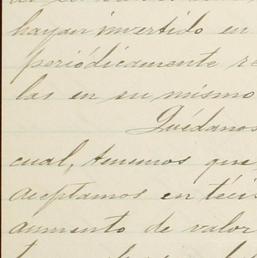 hayan invertido en
periódicamente re
las en su mismo
Quédanos
cual, tenemos que
aceptamos en
aumento de valor